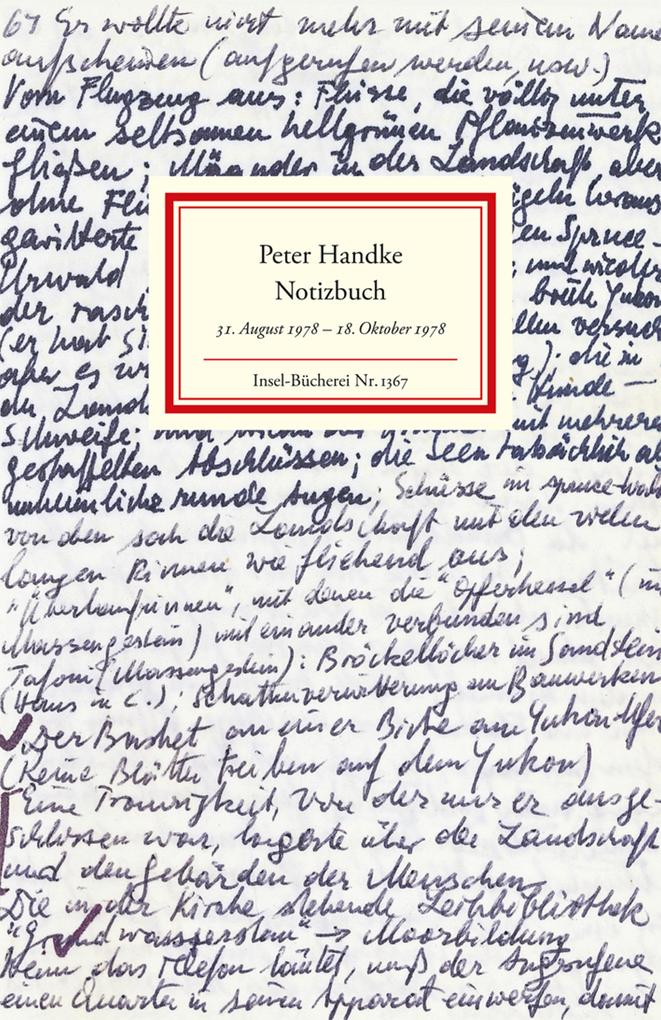 67 Er wollte nicht mehr mit seinem Name
aufscheinen (aufgerufen werden, usw.)
Vom Flugzeug aus: Flüsse, die völlig unter
einem seltsamen hellgrünen Pflanzenwerk
fließen; Mäander in der Landschaft, aber
ohne
gewitterte en Spruce-
Urwald ; und wieder
der rasch
(er hat versuch
aber es ). die in
der Runde —
Schweife; mit mehrere
gestaffelten Abschlüssen; die Seen tatsächlich al
unheimliche runde Augen; Schüsse im spruce-
von oben sah die Landschaft mit den vielen
langen Rinnen wie fliehend aus;
"Überlaufrinnen", mit denen die "Opferkessel" (im
Massengestein) miteinander verbunden sind
Tafoni (Massengestein): Bröckellöcher im Sandstein
(Haus in C.), Schattenverwitterung an Bauwerken
Der Basket an einer Birke am Yukonufer
(Keine Blätter treiben auf dem Yukon)
Eine Traurigkeit, von der nur er ausge-
schlossen war, lagerte über der Landschaft
und den Gebärden der Menschen
Die in der Kirche stehende Leihbibliothek
"Grundwasserstau" → Moorbildung
Wenn das Telefon läutet, muß der Angerufene
einen Quarter in seinen Apparat einwerfen, damit
Peter Handke
Notizbuch
31. August 1978 – 18. Oktober 1978
Insel-Bücherei Nr. 1367